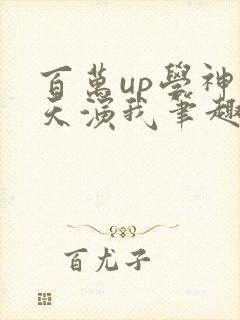 百萬up學神
天演我筆趣
百尤子